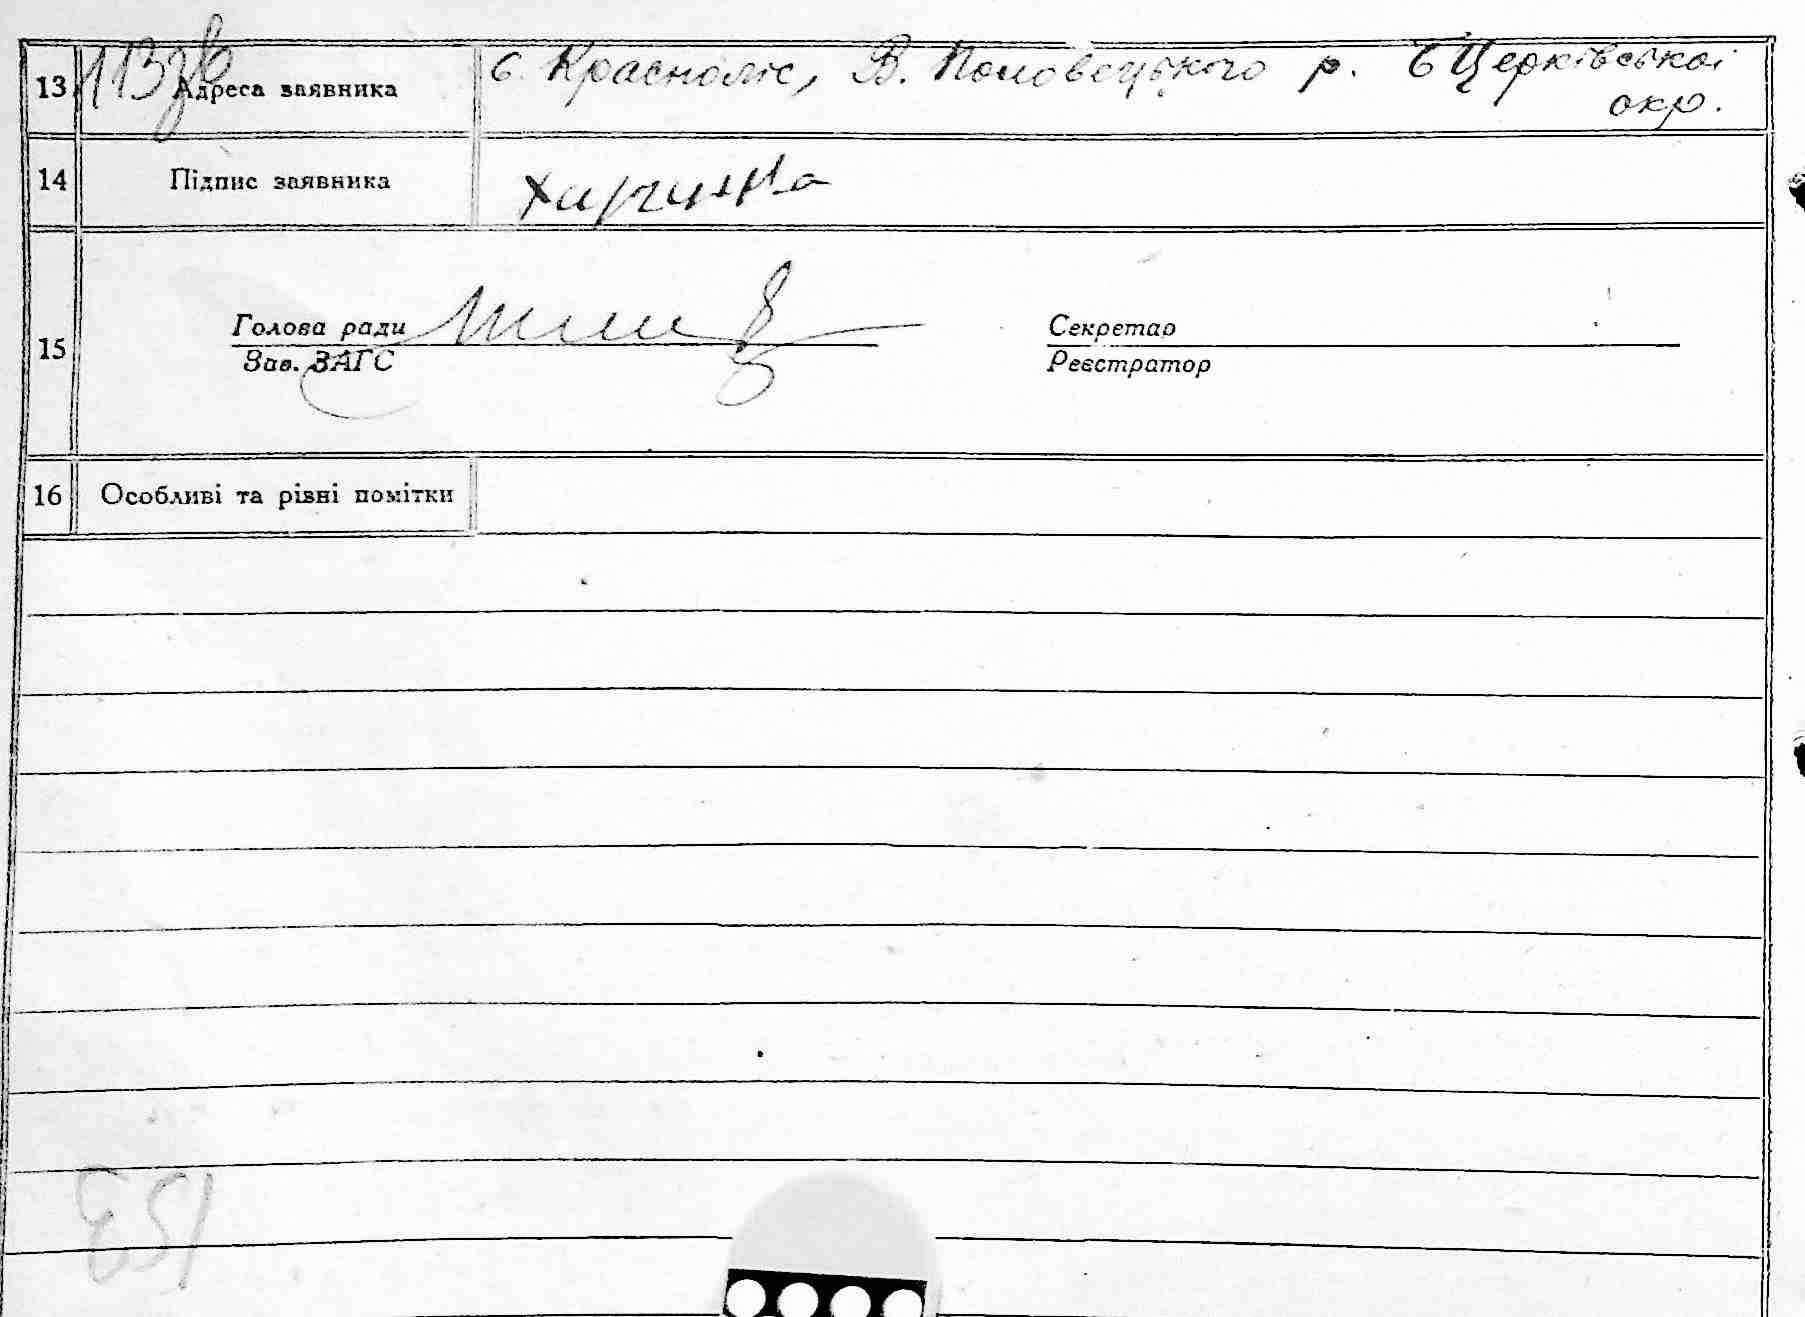 113зв
13 Адреса заявника с. Красноліс, В. Половецького р. БЦерківської
окр.
14 Підпис заявника Харчинка
15 Голова ради Секретар
Зав. ЗАГС Реєстратор
16 Особливі та різні помітки
153